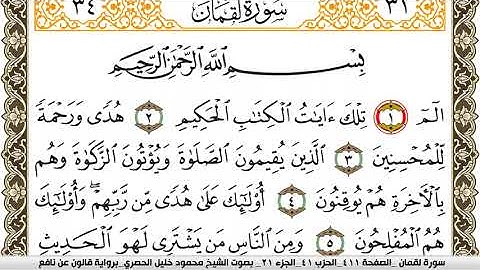 ٣٤ سورة لقمان ٣١
بسم الله الرحمن الرحيم
الٓمٓ ١ تِلْكَ ءَايَٰتُ ٱلْكِتَٰبِ ٱلْحَكِيمِ ٢ هُدًى وَرَحْمَةً
لِّلْمُحْسِنِينَ ٣ ٱلَّذِينَ يُقِيمُونَ ٱلصَّلَوٰةَ وَيُؤْتُونَ ٱلزَّكَوٰةَ وَهُم
بِٱلْأَخِرَةِ هُمْ يُوقِنُونَ ٤ أُوْلَٰٓئِكَ عَلَىٰ هُدًى مِّن رَّبِّهِمْ وَأُوْلَٰٓئِكَ
هُمُ ٱلْمُفْلِحُونَ ٥ وَمِنَ ٱلنَّاسِ مَن يَشْتَرِى لَهْوَ ٱلْحَدِيثِ
سورة لقمان _الصفحة ٤١١_ الحزب ٤١_ الجزء ٢١_ بصوت الشيخ محمود خليل الحصري_برواية قالون عن نافع